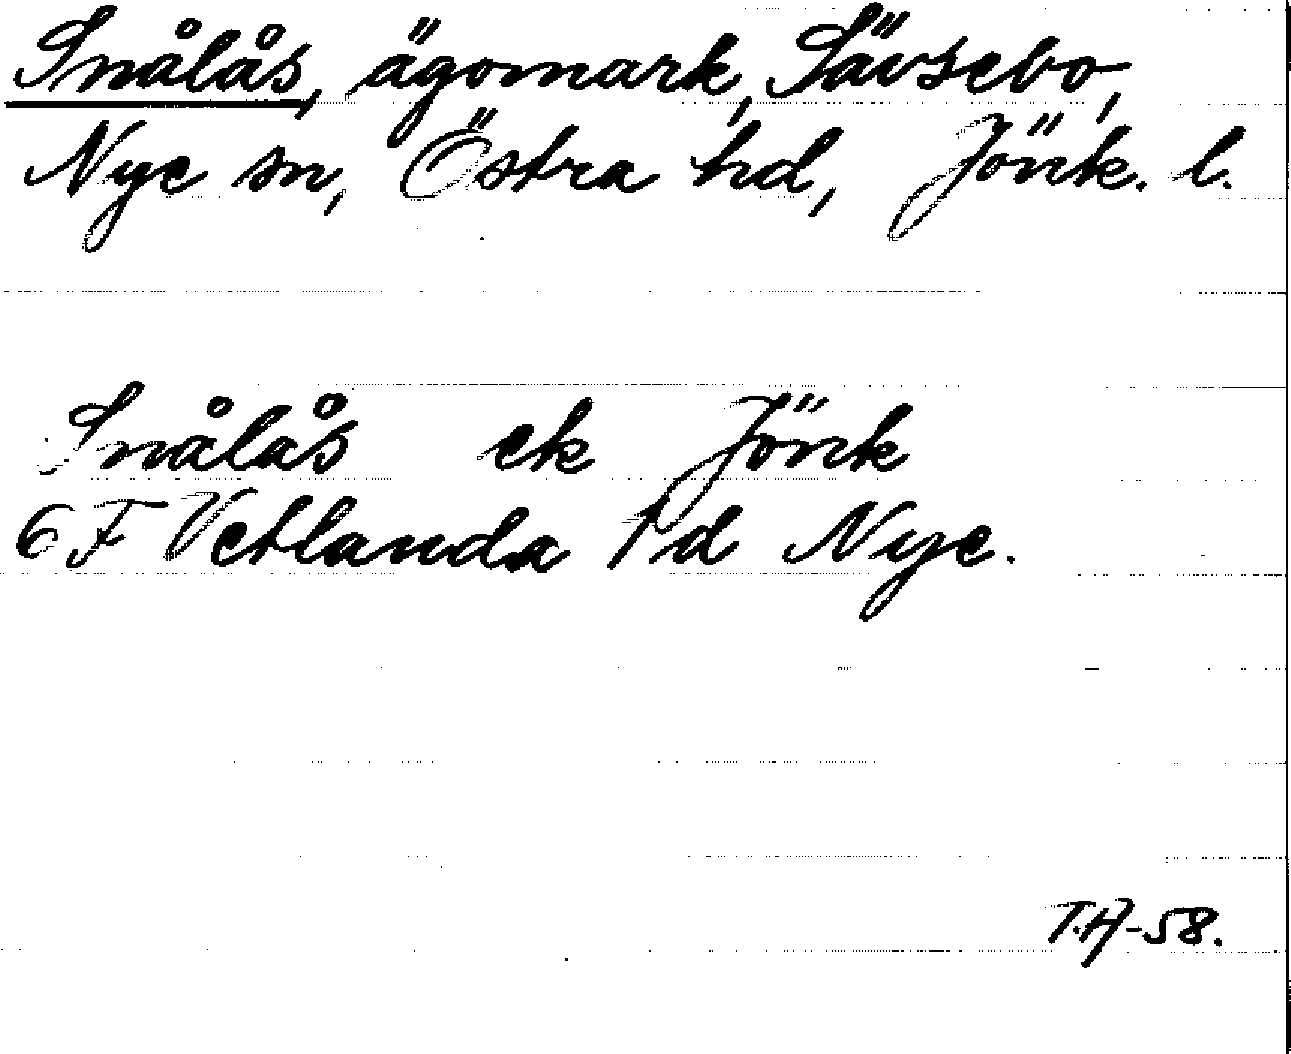 Snålås, ägomark, Sävsebo,
Nye sn, Östra hd, Jönk. l.
Snålås ek Jönk
6F Vetlanda 1d Nye.
T.A-58.